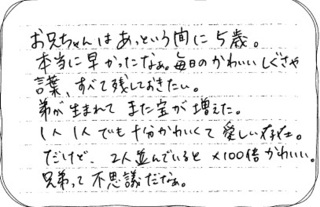 お兄ちゃんはあっという間に5歳。
本当に早かったなぁ。毎日のかわいいしぐさや
言葉、すべて残しておきたい。
弟が生まれてまた宝が増えた。
1人1人でも十分かわいくて愛しい存在。
だけど、2人並んでいると×100倍かわいい。
兄弟って不思議だなぁ。